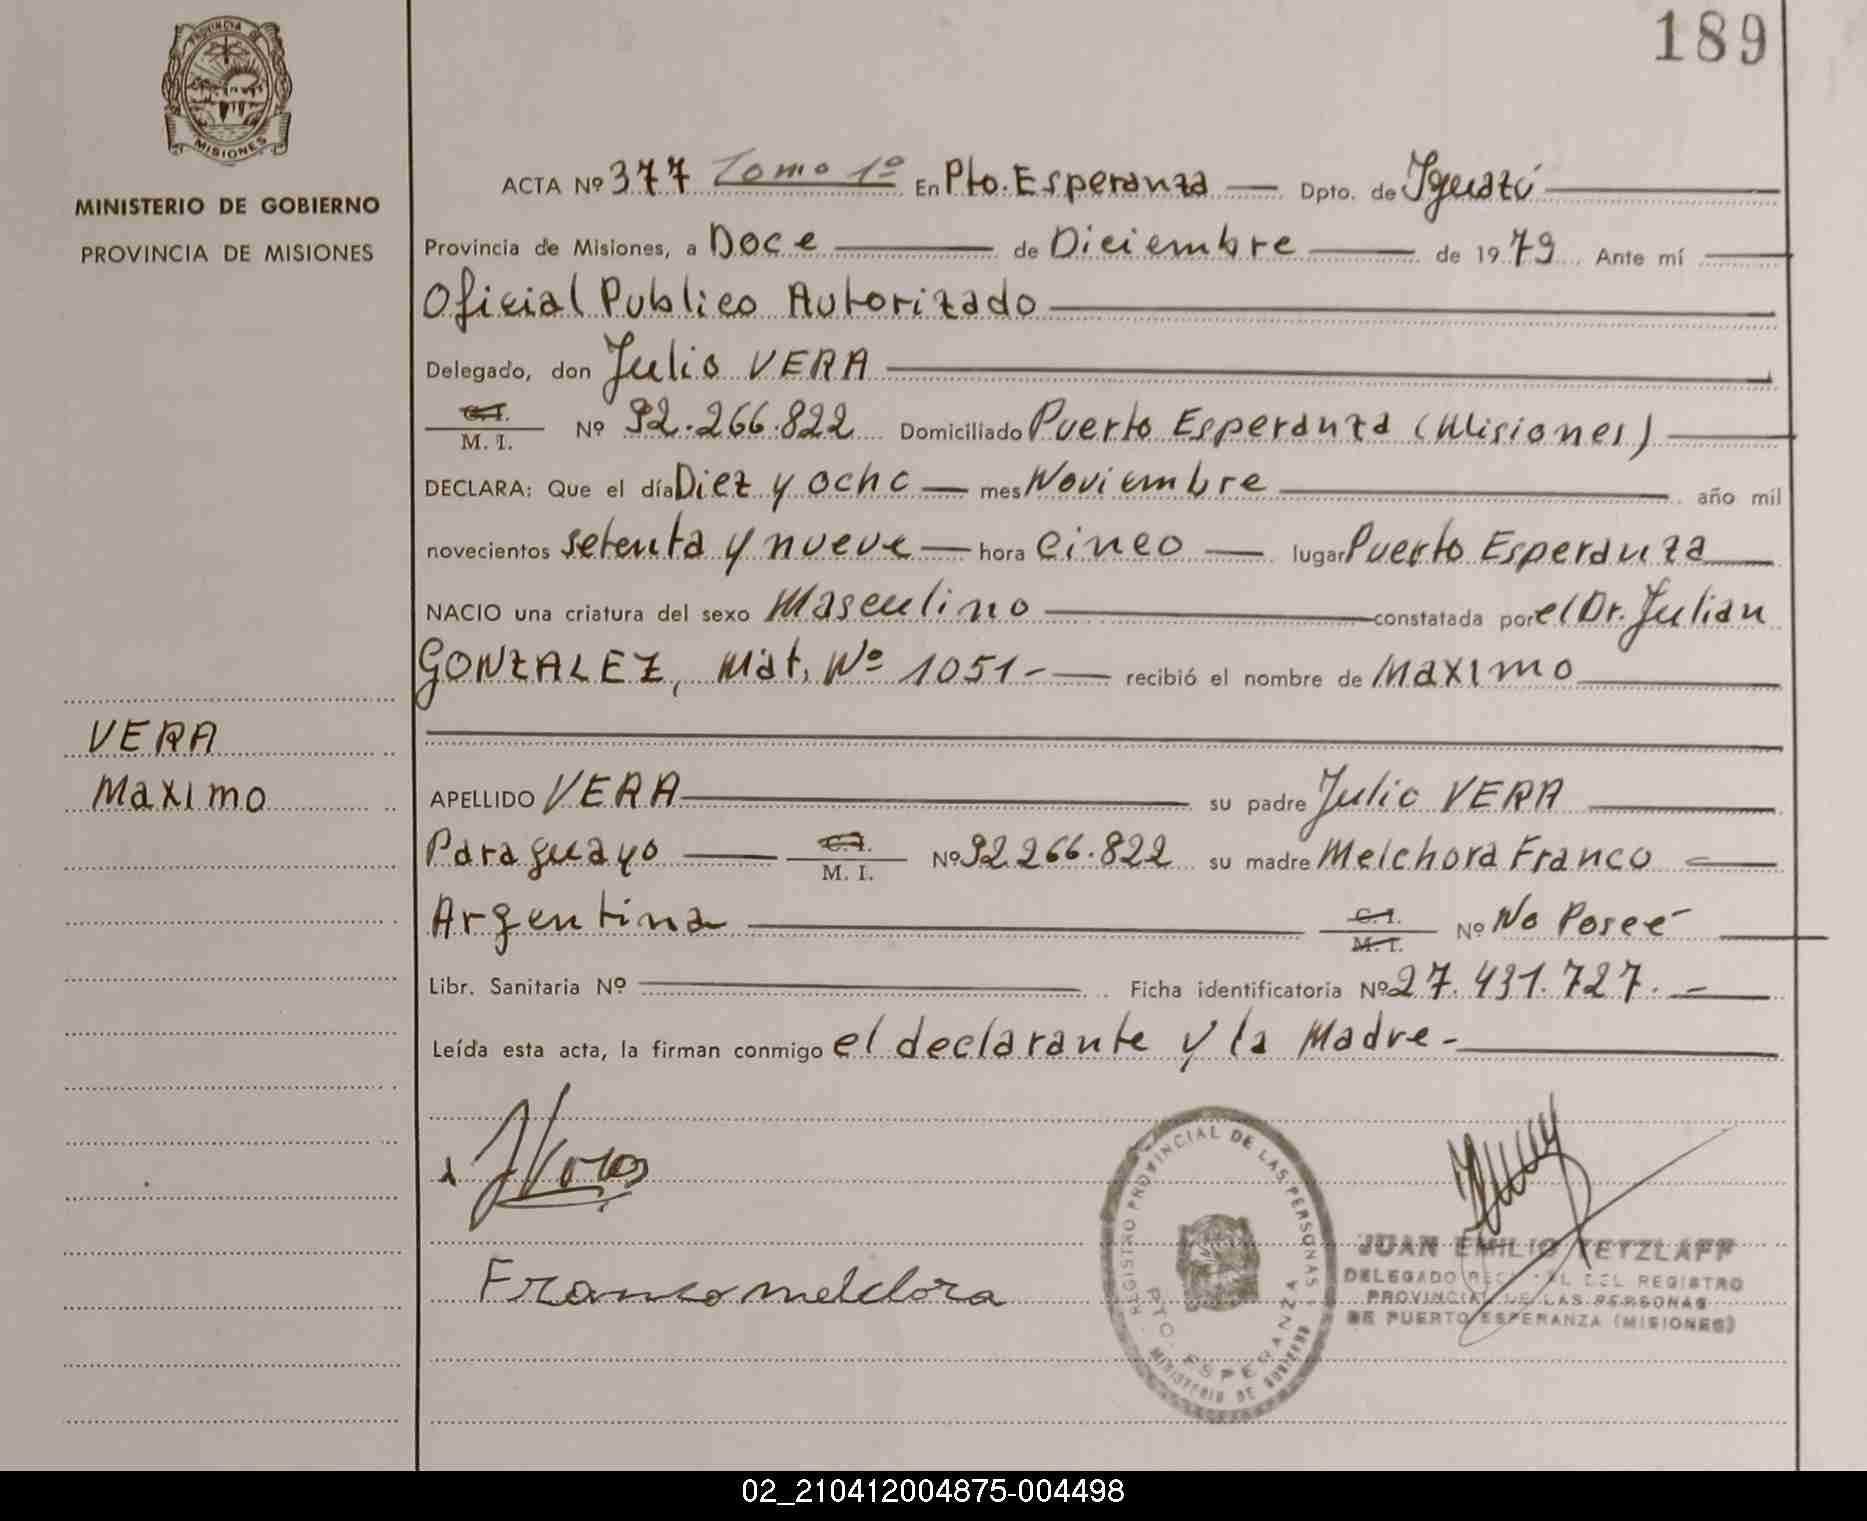 189
PROVINCIA DE
MISIONES
MINISTERIO DE GOBIERNO
PROVINCIA DE MISIONES
ACTA Nº 377 Tomo 1º En Pto. Esperanza Dpto. de Iguazú
Provincia de Misiones, a Doce de Diciembre de 1979 Ante mí
Oficial Publico Autorizado
Delegado, don Julio VERA
C.I.
M. I. Nº 92.266.822 Domiciliado Puerto Esperanza (Misiones)
DECLARA: Que el día Diez y ocho mes Noviembre año mil
novecientos setenta y nueve hora cinco lugar Puerto Esperanza
NACIO una criatura del sexo Masculino constatada por el Dr. Julian
GONZALEZ, Mat. Nº 1051- recibió el nombre de Maximo
VERA
Maximo
APELLIDO VERA su padre Julio VERA
Paraguayo C.I.
M. I. Nº 92.266.822 su madre Melchora Franco
Argentina C.I.
M.I. Nº No Posee
Libr. Sanitaria Nº Ficha identificatoria Nº 27.431.727.-
Leída esta acta, la firman conmigo el declarante y la Madre-
Franco melchora
REGISTRO PROVINCIAL DE LAS PERSONAS
PTO. ESPERANZA
MINISTERIO DE GOBIERNO
JUAN EMILIO TETZLAFF
DELEGADO DEL REGISTRO
PROVINCIAL DE LAS PERSONAS
DE PUERTO ESPERANZA (MISIONES)
02_210412004875-004498